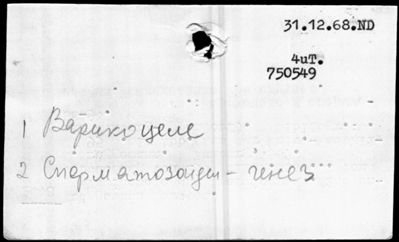 31.12.68.ND
4иT.
750549
1 Варикоцеле
2 Сперматозоиды - генез